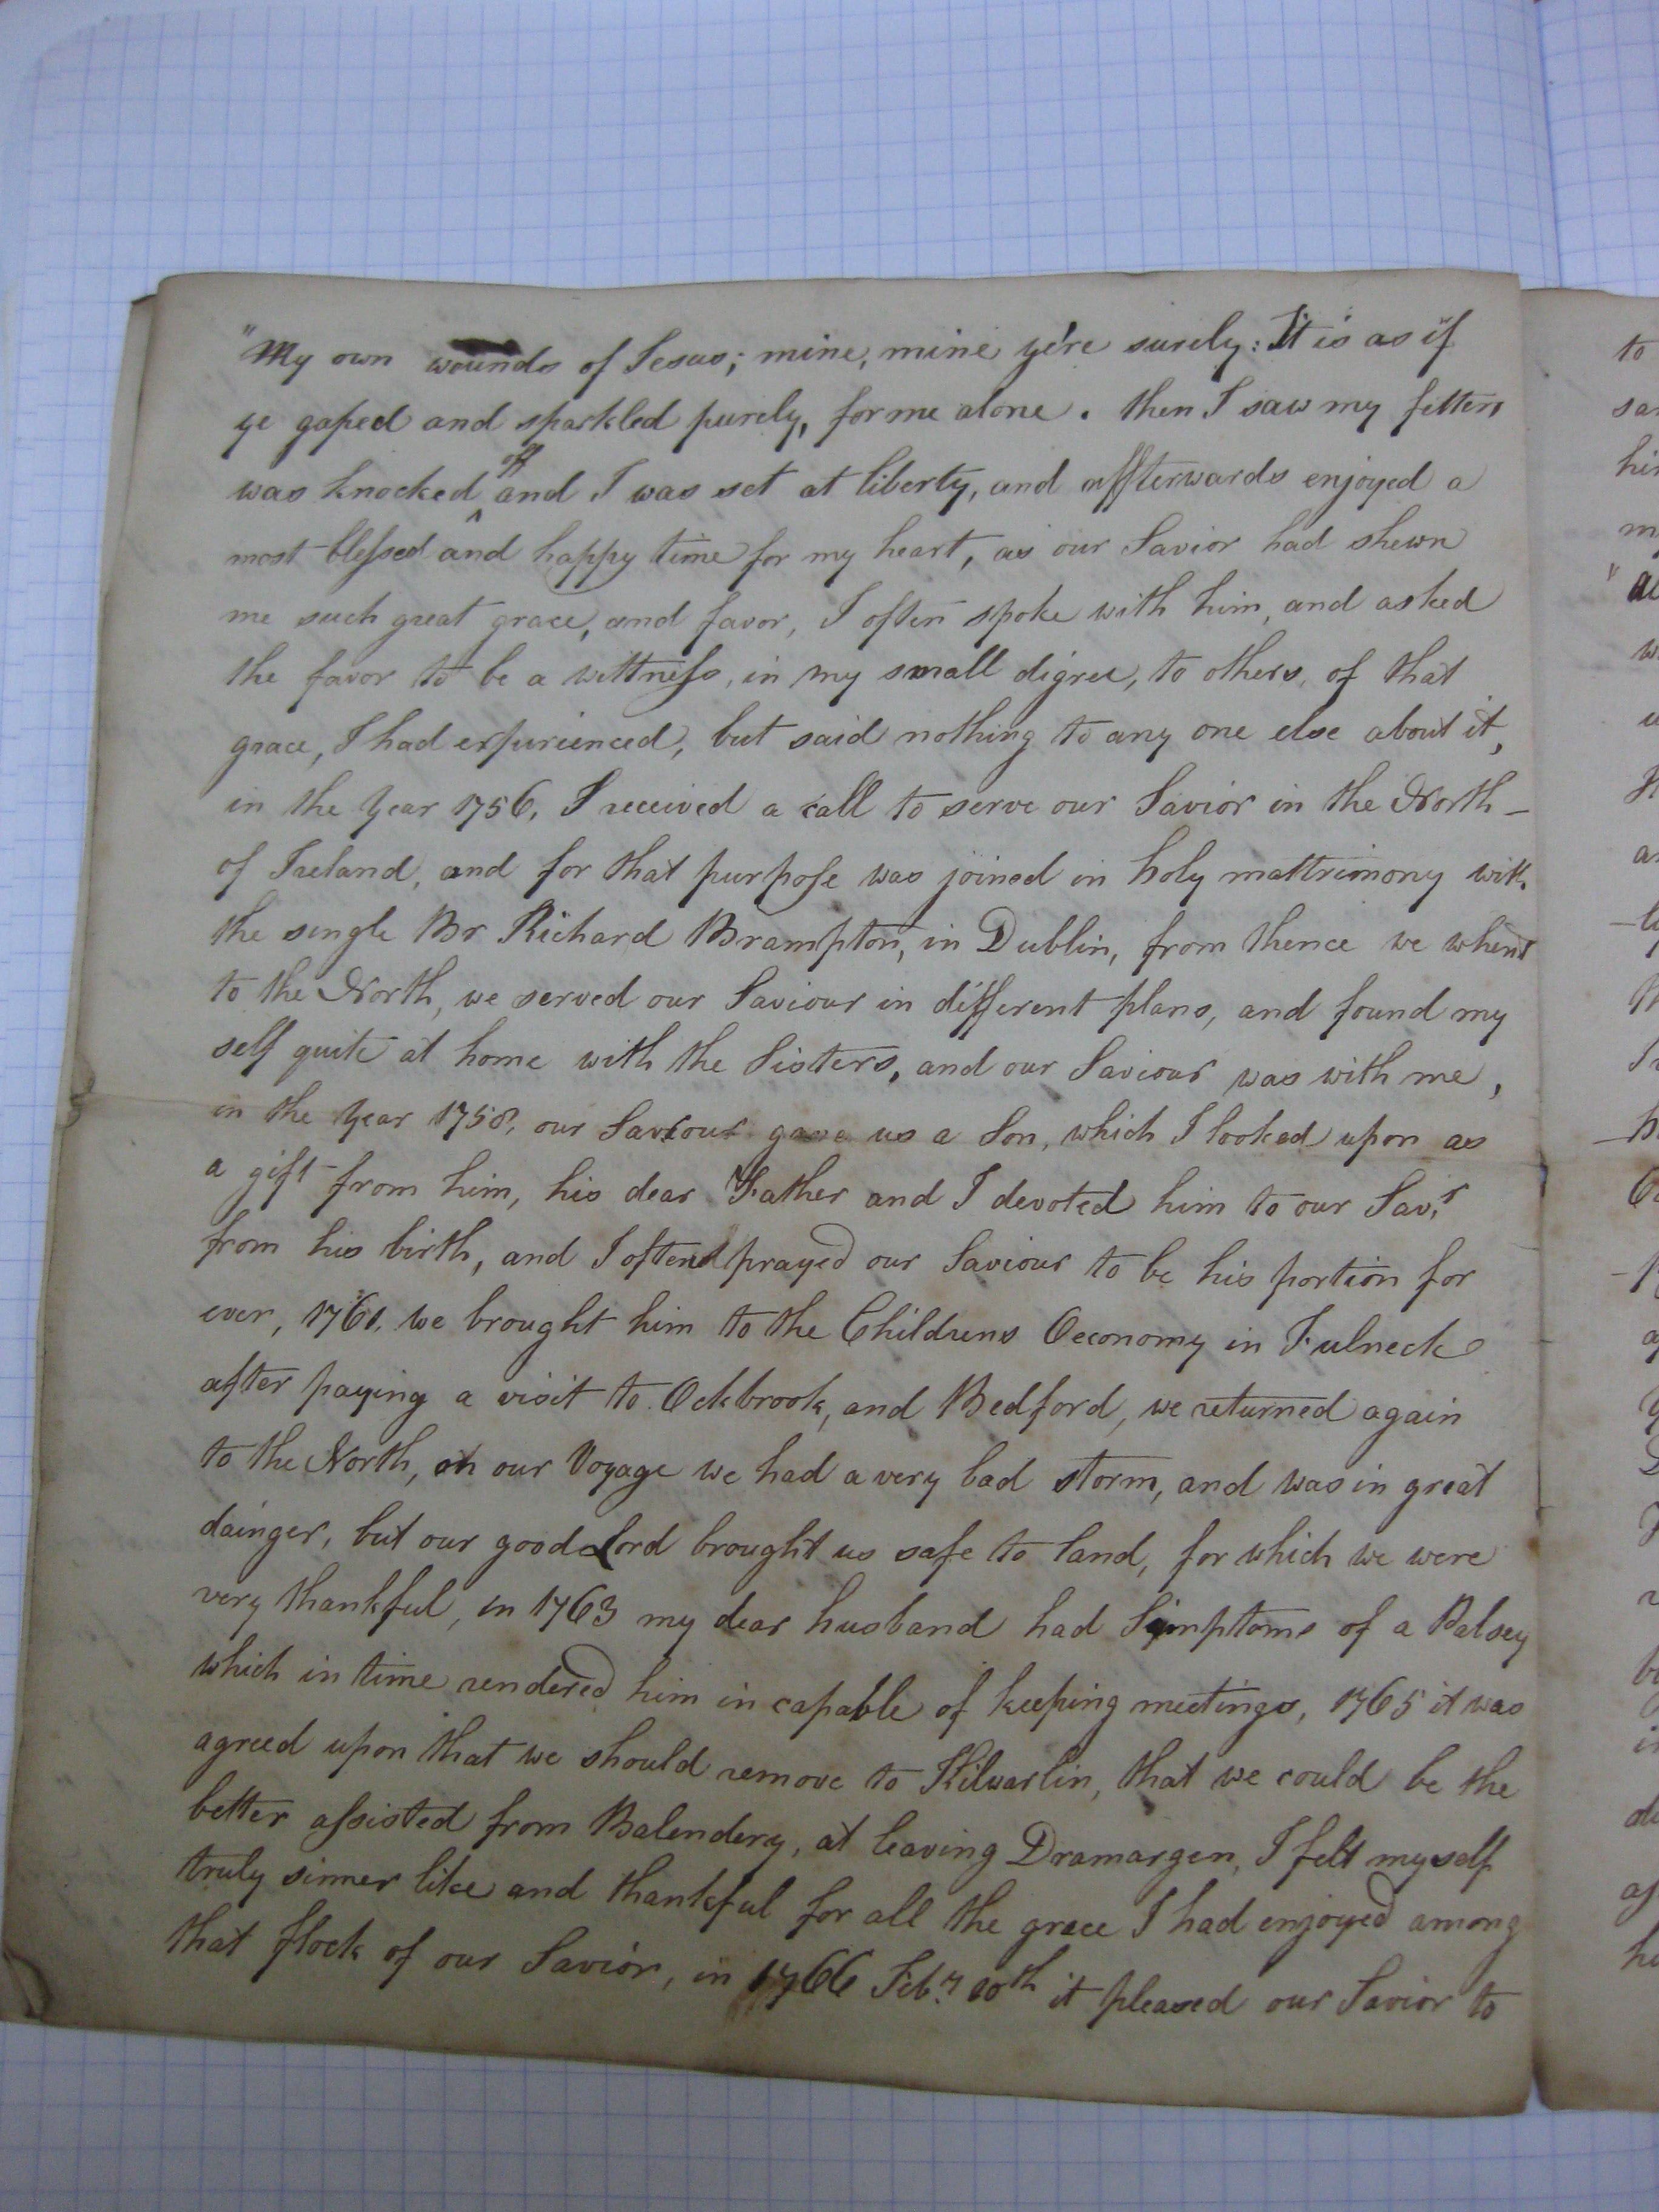 "My own wounds of Jesus; mine, mine ye're surely: It is as if
ye gaped and sparkled purely, for me alone. then I saw my fetters
was knocked off and I was set at liberty, and affterwards enjoyed a
most blessed and happy time for my heart, as our Savior had shewn
me such great grace, and favor, I often spoke with him, and asked
the favor to be a wittness, in my small digree, to others, of that
grace, I had expurienced, but said nothing to any one else about it,
in the Year 1756, I received a call to serve our Savior in the North
of Ireland, and for that purpose was joined in holy mattrimony with
the single Br Richard Brampton, in Dublin, from thence we whent
to the North, we served our Saviour in different plans, and found my
self quite at home with the Sisters, and our Saviour was with me,
in the Year 1758, our Saviour gave us a Son, which I looked upon as
a gift from him, his dear Father and I devoted him to our Savr
from his birth, and I often prayed our Saviour to be his portion for
ever, 1761, we brought him to the Childrens Oeconomy in Fulneck
after paying a visit to Ockbrook, and Bedford, we returned again
to the North, on our Voyage we had a very bad storm, and was in great
dainger, but our good Lord brought us safe to land, for which we were
very thankful, in 1763 my dear husband had Symptoms of a Palsey
which in time rendered him in capable of keeping meetings, 1765 it was
agreed upon that we should remove to Kilwarlin, that we could be the
better assisted from Balendery, at leaving Dramargen, I felt myself
truly sinner like and thankful for all the grace I had enjoyed among
that flock of our Savior, in 1766 Feby it pleased our Savior to